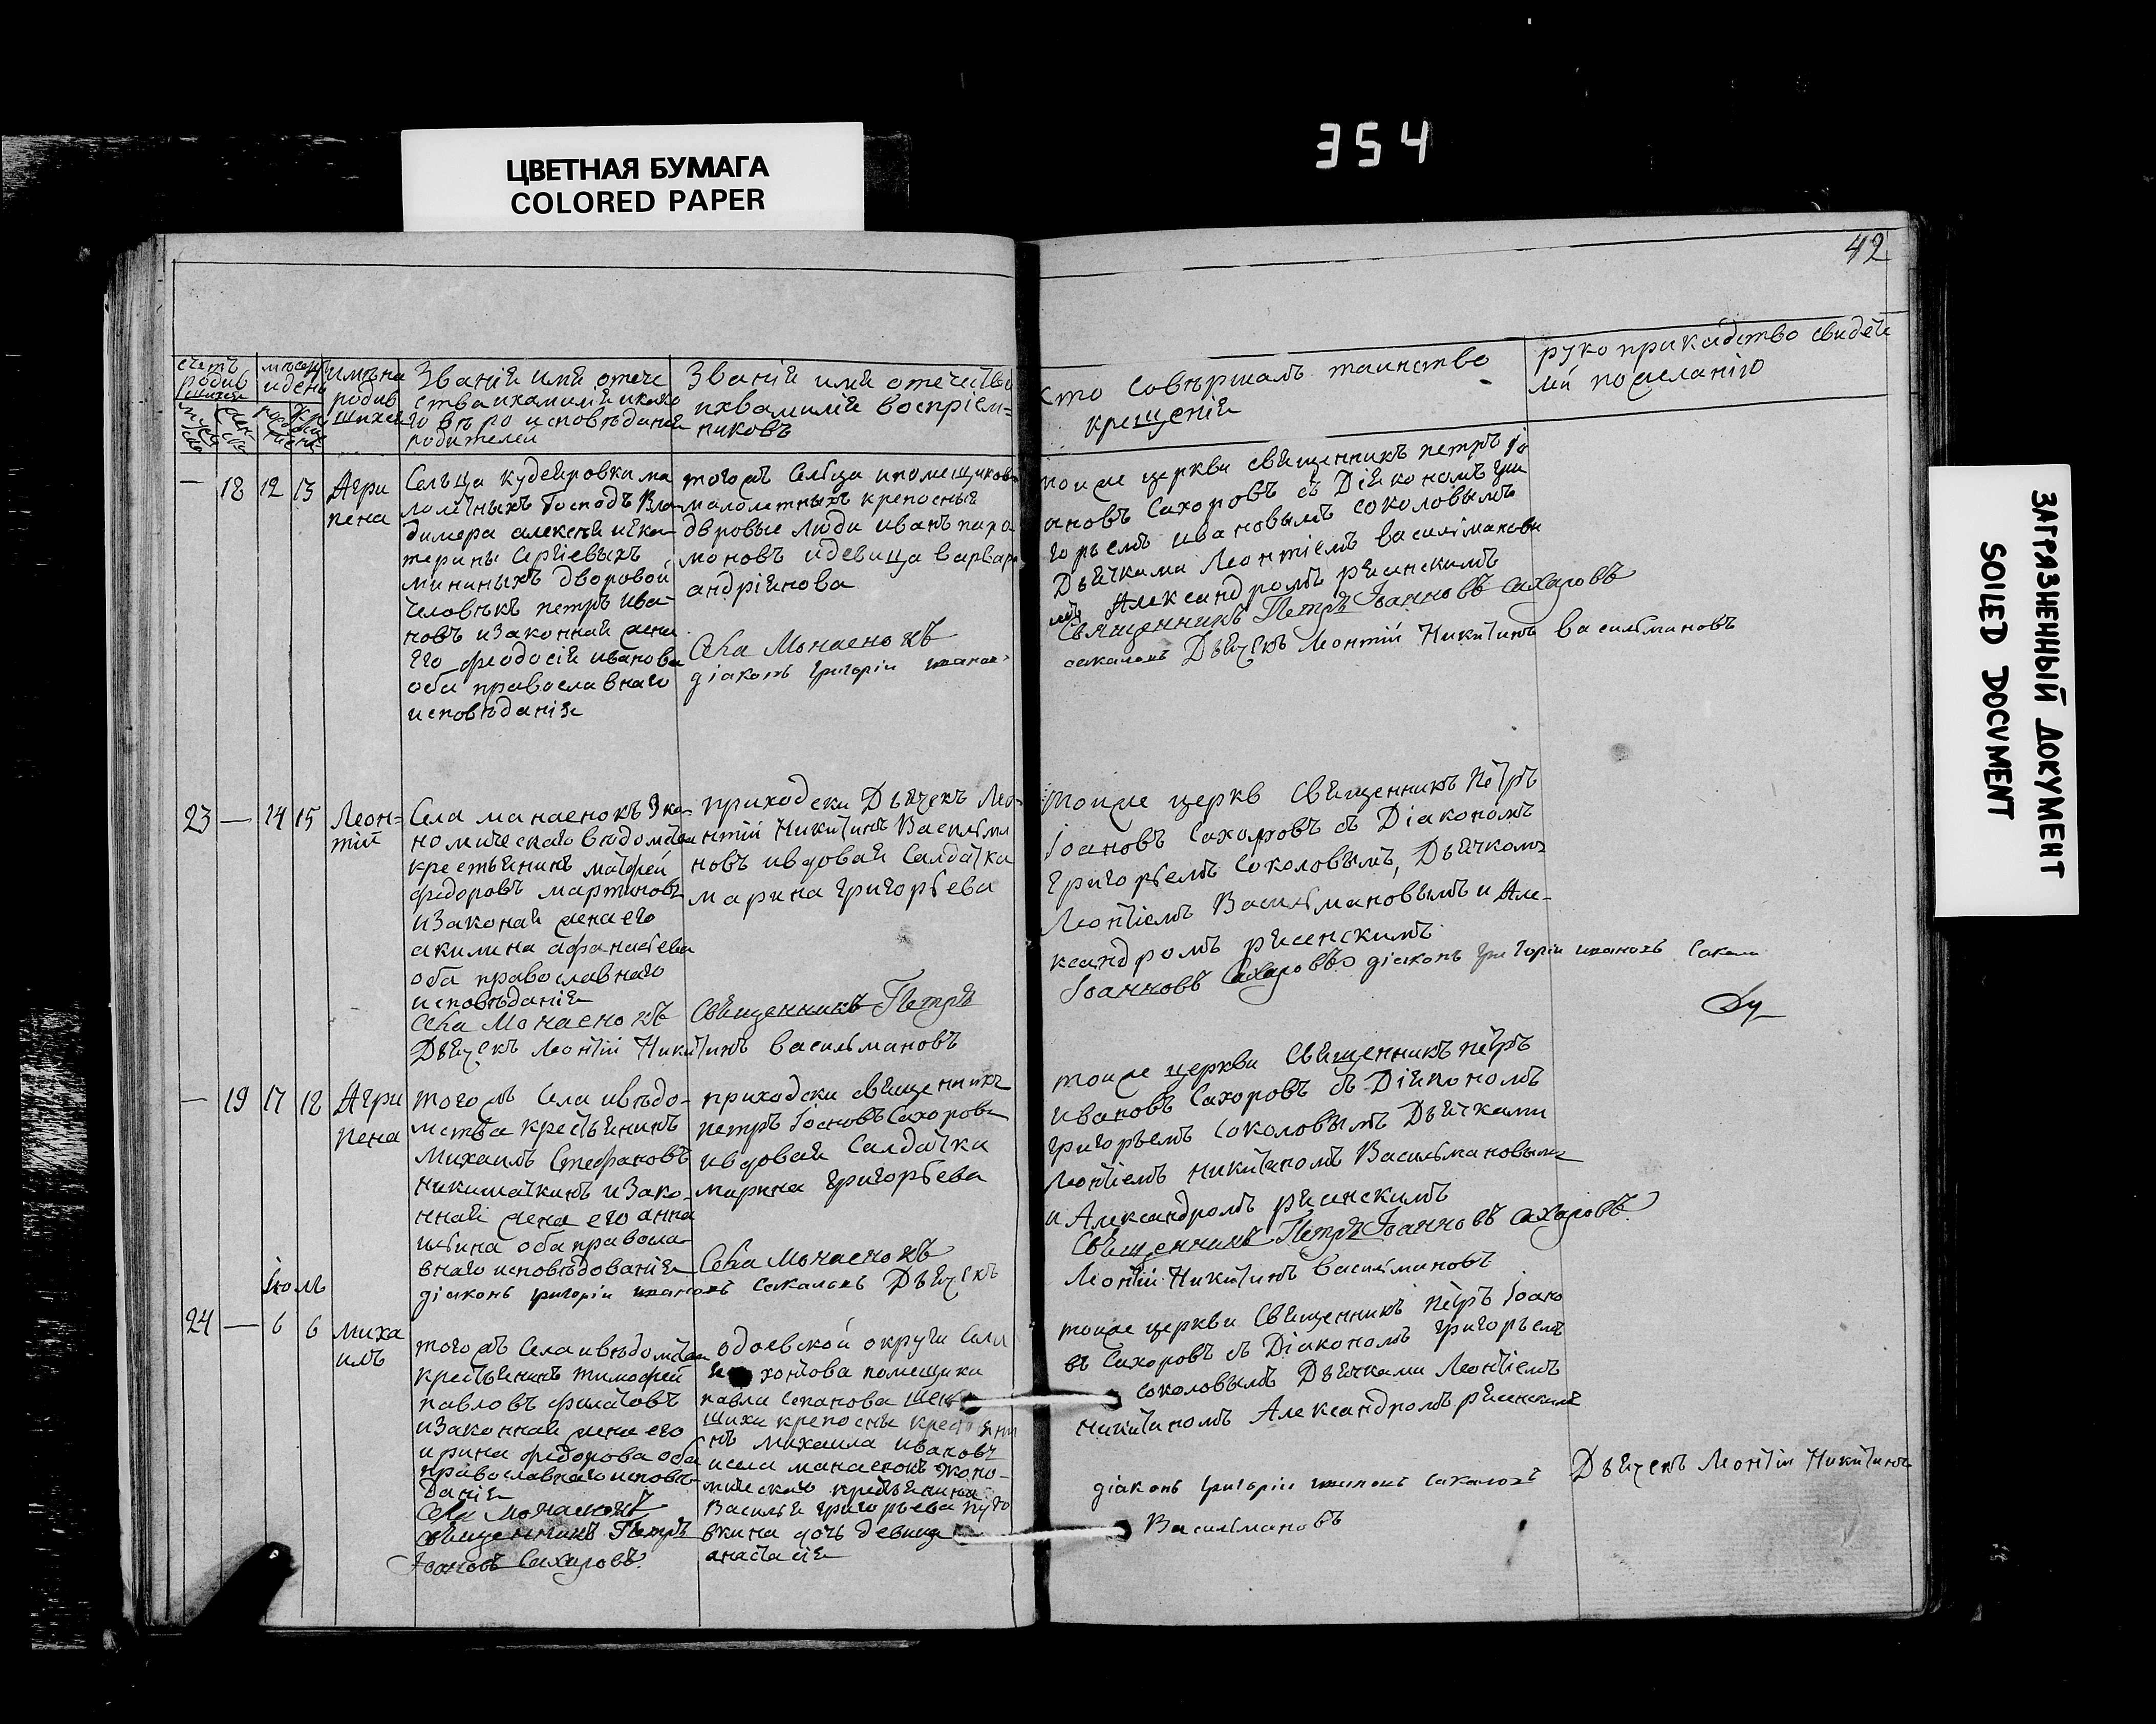 354
ЦВЕТНАЯ БУМАГА
COLORED PAPER
ЗАГРЯЗНЕННЫЙ ДОКУМЕНТ
SOILED DOCUMENT
42
счетъ
родив
шихся
имѣна
родив
шихся
Званій имй отече
родителей
Званій имй отечество
воспріем=
никовъ
кто Совѣршалъ таинство
крещеній
руко прикадство свидѣте
лей по желанію
— 18 12 13
Агри
пена
Сельца кудеяровки ма
лолѣтныхъ Господъ Вла
димера алексѣя и ека
терины Сергіевыхъ
мининыхъ дворовой
человѣкъ петръ ива
новъ и законнай жена
его феодосія иванова
оба православнаго
исповѣданія
тогожъ Сельца и помещиковъ
малолетныхъ крепосныя
дворовые люди иванъ пара
моновъ и девица варвара
андріянова
Села Монаенокъ
діаконъ григоріи иванов
тоиже церкви священникъ петръ Іо
ановъ Сахоровъ съ Діякономъ гри
горьемъ ивановымъ соколовымъ
Дьячками Леонтіемъ василмановы
мъ Александромъ
Священникъ Петръ Іоанновъ Сахаровъ
сакаловъ Дьячекъ Леонтій Никитинъ василмановъ
23 — 14 15
Леон=
тій
Села манаенокъ Эко
номическаго вѣдомства
крестьянинъ матфей
федоровъ мартиновъ
и законай жена его
акилина афанасьева
оба православнаго
исповѣданія
Села Монаенокъ
Дьячекъ Леонтій Никитинъ василмановъ
приходски Дьячекъ Лео
нтій Никитинъ Василма
новъ и вдовая Салдатка
марина григорьева
Священникъ Петръ
тоиже церкв Священникъ Петръ
Іоановъ Сахоровъ съ Діакономъ
Григорьемъ Соколовымъ, Дьячкомъ
Леонтіемъ Василмановымъ и Але-
ксандромъ
Іоанновъ Сахаровъ діаконъ григоріи ивановъ Сакало
— 19 17 18
Агри
пена
тогожъ Села и вѣдо-
мства крестьянинъ
Михаилъ Стефановъ
никишаткинъ и зако-
ннай жена его анна
ильина оба правосла
внаго исповѣдованія
діаконъ григоріи ивановъ сакаловъ Дьячекъ
приходски священникъ
петръ Іоановъ Сахоровъ
и вдовая Салдатка
марина григорьева
Села Монаенокъ
тоиже церкви Священникъ петръ
ивановъ Сахоровъ съ Діякономъ
григорьемъ Соколовымъ Дьячками
Леонтіемъ никитиномъ Василмановымъ
и Александромъ
Священникъ Петръ Іоанновъ Сахаровъ
Леонтій Никитинъ василмановъ
Іюль
24 — 6 6
миха
илъ
тогожъ Села и вѣдомства
крестьянинъ тимофей
павловъ филатовъ
и законнай жена его
ирина федорова оба
православнаго исповѣ
данія
Села Монаенокъ
священникъ Петръ
Іоановъ Сахаровъ
одоевской округи Села
помещика
павла степанова
крепосны крестьяни
нъ михаила ивановъ
и села манаенокъ эконо-
мическаго крестьянина
Василья григорьева
вкина дочь девица
анастасія
тоиже церкви Священникъ петръ Іоано
въ Сахоровъ съ Діакономъ григорьемъ
Соколовымъ Дьячками Леонтіемъ
никитиномъ Александромъ
діаконъ григоріи ивановъ сакаловъ Дьячекъ Леонтій Никитинъ
Василмановъ